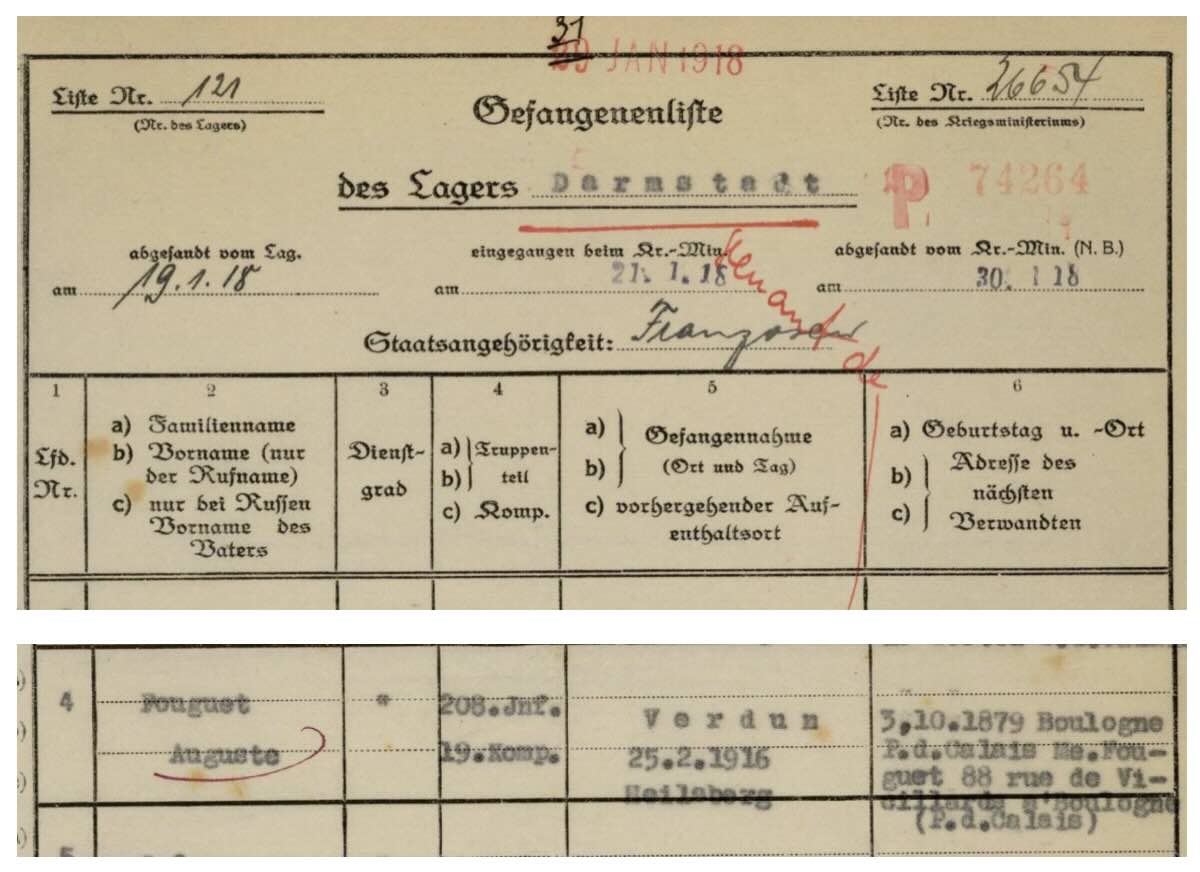 31
29 JAN 1918
Liste Nr. 121
(Nr. des Lagers)
Gefangenenliste
Liste Nr. 26654
(Nr. des Kriegsministeriums)
des Lagers Darmstadt
P 74264
abgesandt vom Lag.
am 19.1.18
eingegangen beim Kr.-Min.
am 21. 1. 18
abgesandt vom Kr.-Min. (N. B.)
am 30. 1 18
Staatsangehörigkeit: Franzosen
1
Lfd.
Nr.
2
a) Familienname
b) Vorname (nur
der Rufname)
c) nur bei Russen
Vorname des
Vaters
3
Dienst-
grad
4
a) Truppen-
b) teil
c) Komp.
5
a) Gefangennahme
b) (Ort und Tag)
c) vorhergehender Auf-
enthaltsort
6
a) Geburtstag u. -Ort
b) Adresse des
nächsten
c) Verwandten
4
Fouguet
Auguste
"
208.Jnf.
19.Komp.
Verdun
25.2.1916
Heilsberg
" "
3,10.1879 Boulogne
P.d.Calais Me.Fou-
guet 88 rue de Vi-
dillards s'Boulogne
(P.d.Calais)
5